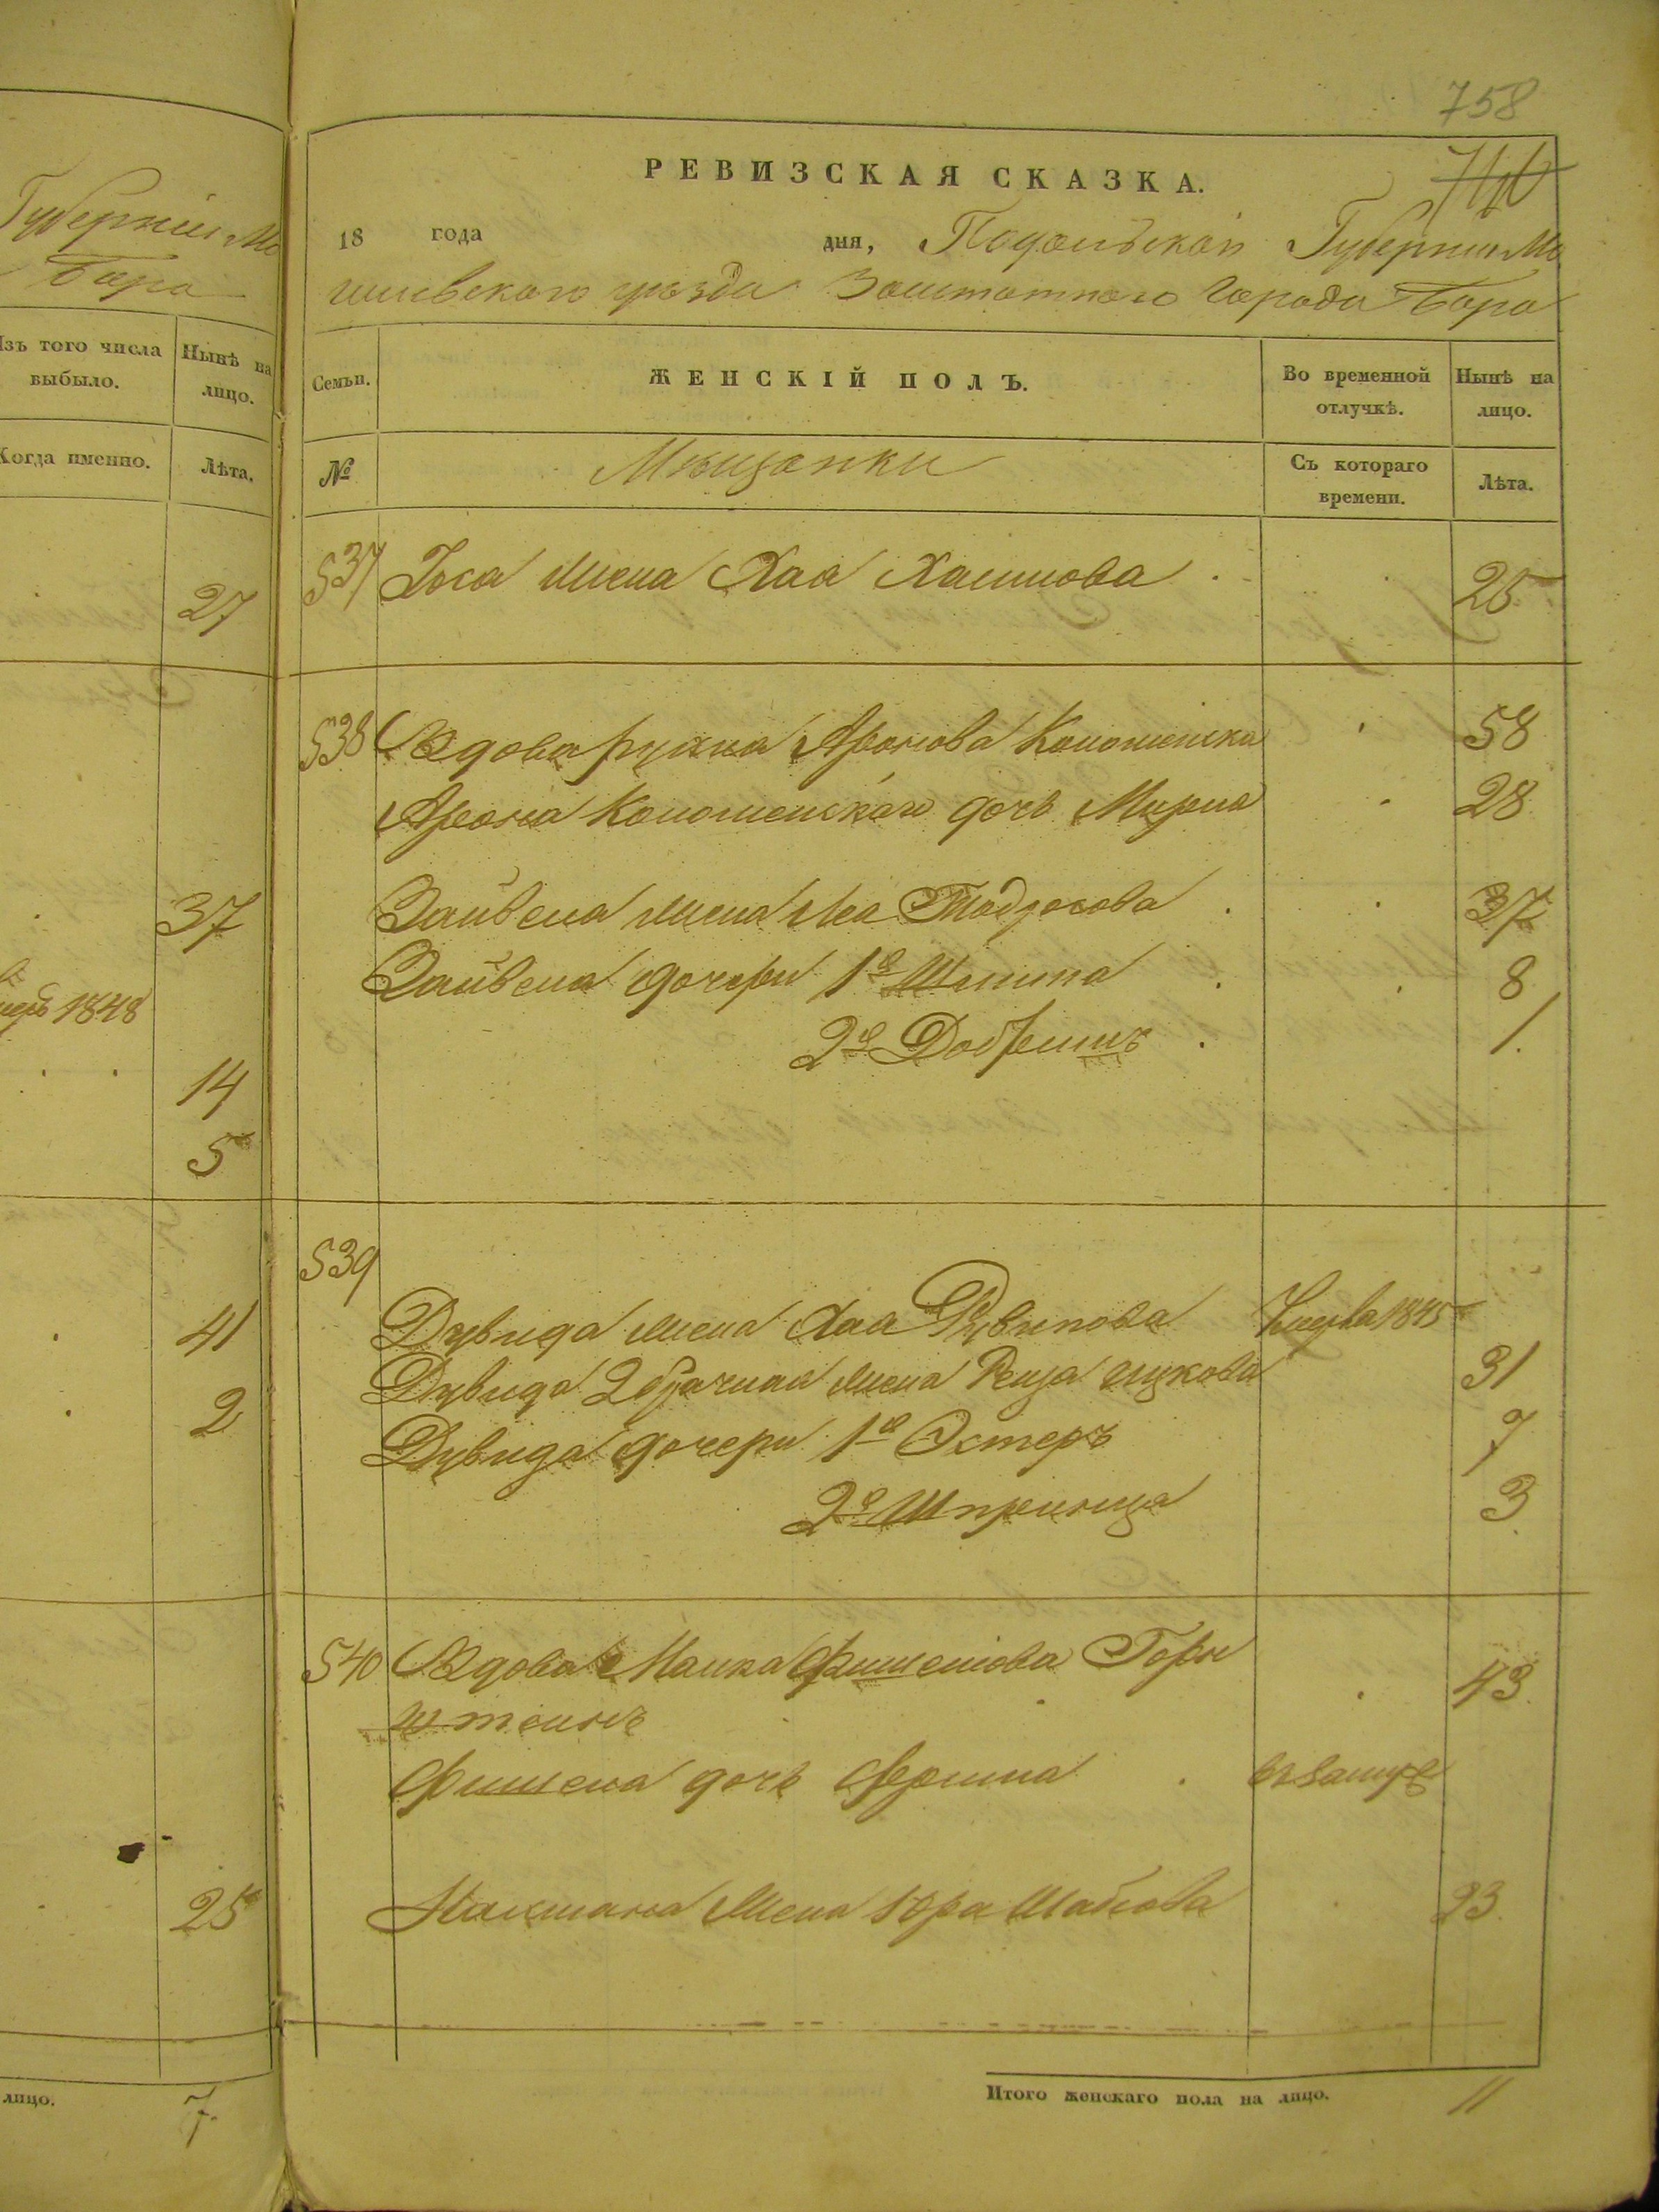 758
РЕВИЗСКАЯ СКАЗКА.
740
18 года дня, Подольской Губернiи Мо
гилевского уѣзда Заштатного Города Бара
Семьи.
ЖЕНСКІЙ ПОЛЪ.
Во временной отлучкѣ.
Нынѣ на лицо.
№
Мѣщанки
Съ котораго времени.
Лѣта.
537 Іоса жена Хая Хаимова 25
538 Вдова Аронова 58
Арона дочь 28
Зайвеля жена Леа Тодросова 37
Зайвеля дочери 1я 8
2я Добришъ 1.
539
Дувида жена Хая Рувинова Умерла 1845
Дувида 2 брачная жена 31
Дувида дочери 1я Эстеръ 7
2я Шпринца 3
540 Вдова Малка Фишелова Горн 43
штейнъ
Фишеля дочь Фрима въ замуж
Нахмана жена 23
Итого женскаго пола на лицо. 11
Губернiи Мо
Бара
Изъ того числа выбыло.
Нынѣ на лицо.
Когда именно.
Лѣта.
27
37
1848
14
5
41
2
25
лицо. 7.